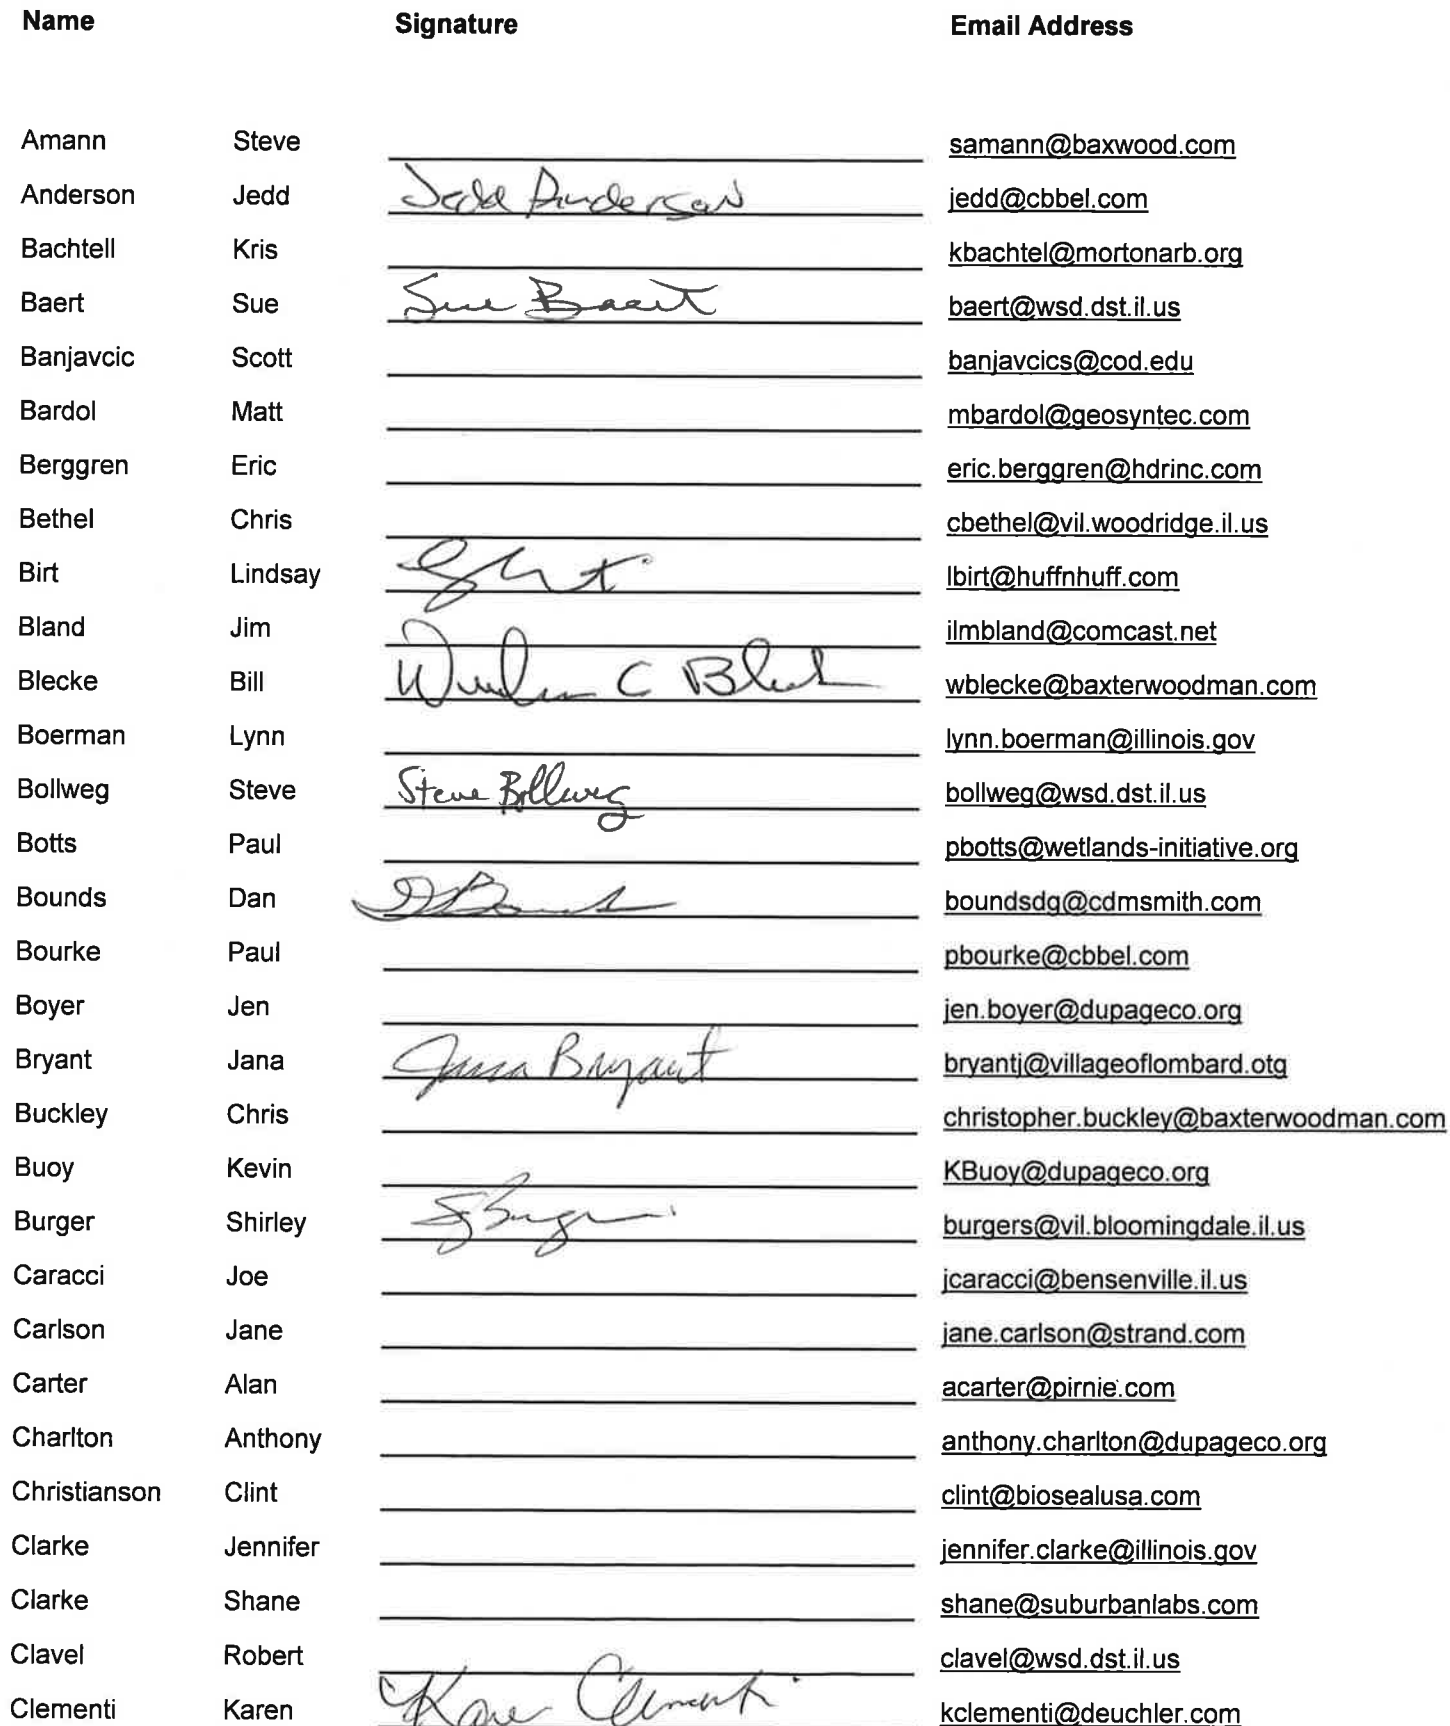 Name Signature Email Address
Amann Steve samann@baxwood.com
Anderson Jedd Jedd Anderson jedd@cbbel.com
Bachtell Kris kbachtel@mortonarb.org
Baert Sue Sue Baert baert@wsd.dst.il.us
Banjavcic Scott banjavcics@cod.edu
Bardol Matt mbardol@geosyntec.com
Berggren Eric eric.berggren@hdrinc.com
Bethel Chris cbethel@vil.woodridge.il.us
Birt Lindsay lbirt@huffnhuff.com
Bland Jim ilmbland@comcast.net
Blecke Bill William C Bleck wblecke@baxterwoodman.com
Boerman Lynn lynn.boerman@illinois.gov
Bollweg Steve Steve Bollweg bollweg@wsd.dst.il.us
Botts Paul pbotts@wetlands-initiative.org
Bounds Dan boundsdg@cdmsmith.com
Bourke Paul pbourke@cbbel.com
Boyer Jen jen.boyer@dupageco.org
Bryant Jana Jana Bryant bryantj@villageoflombard.otg
Buckley Chris christopher.buckley@baxterwoodman.com
Buoy Kevin KBuoy@dupageco.org
Burger Shirley burgers@vil.bloomingdale.il.us
Caracci Joe jcaracci@bensenville.il.us
Carlson Jane jane.carlson@strand.com
Carter Alan acarter@pirnie.com
Charlton Anthony anthony.charlton@dupageco.org
Christianson Clint clint@biosealusa.com
Clarke Jennifer jennifer.clarke@illinois.gov
Clarke Shane shane@suburbanlabs.com
Clavel Robert clavel@wsd.dst.il.us
Clementi Karen Karen Clementi kclementi@deuchler.com